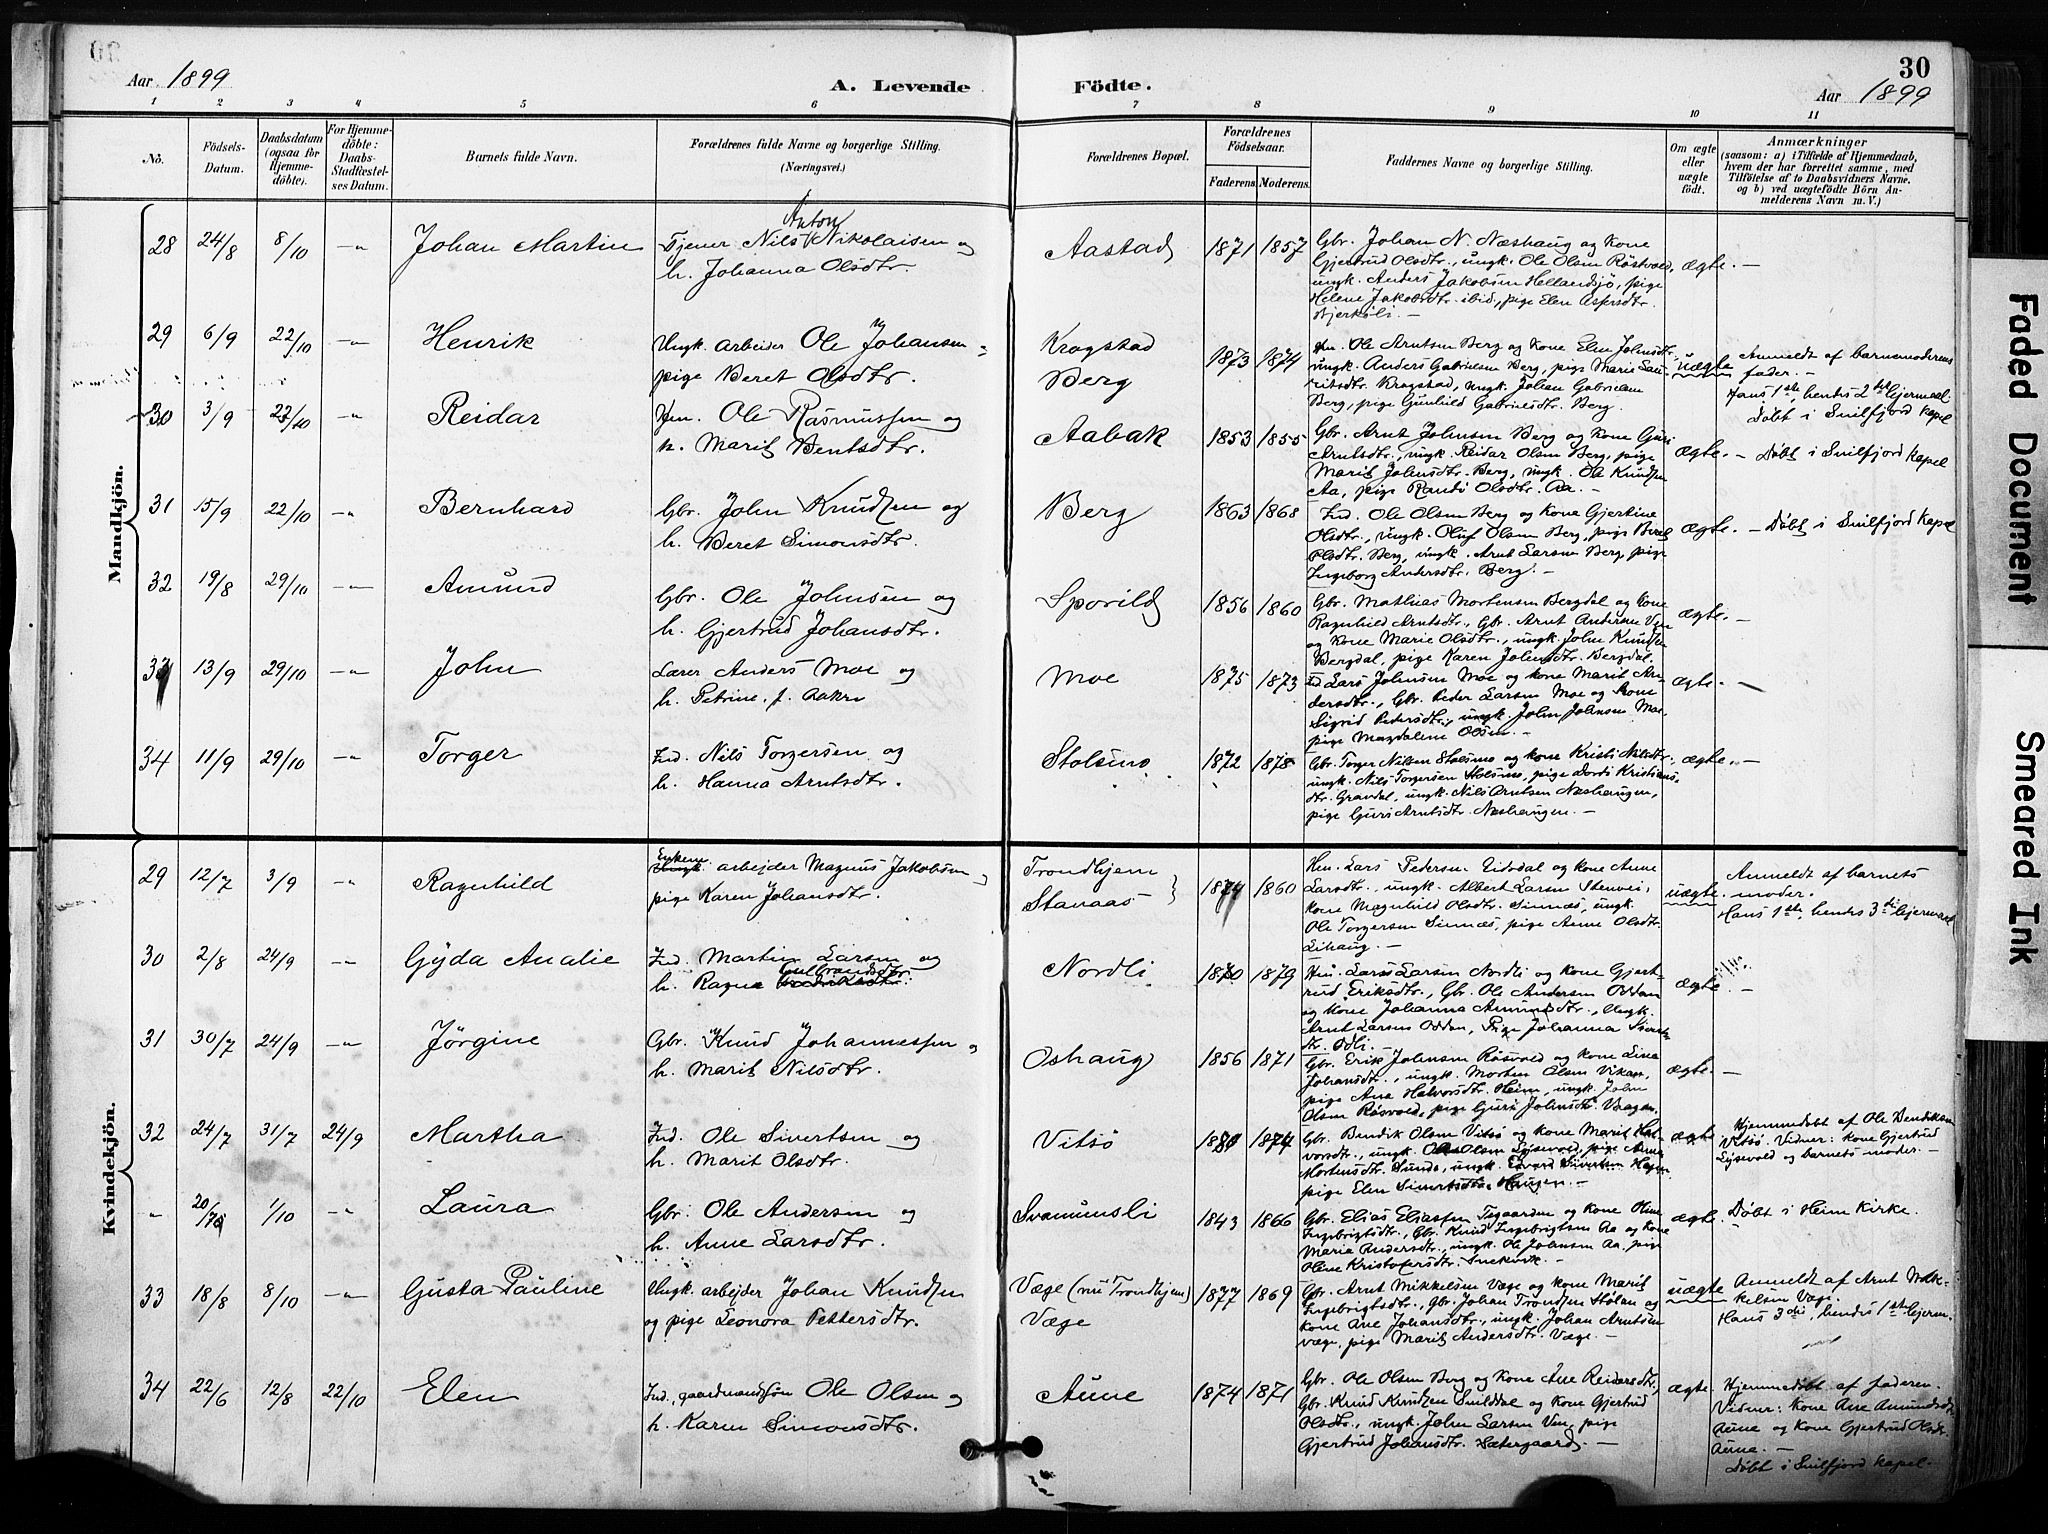 Aar 1899
A. Levende Födte.
30
Aar 1899
1 2 3 4 5 6 7 8 9 10 11
No.
Födsels-Datum.
Daabsdatum (ogsaa for Hjemme-döbte).
For Hjemme-döbte: Daabs-Stadfæstel-ses Datum.
Barnets fulde Navn.
Forældrenes fulde Navne og borgerlige Stilling. (Næringsvei.)
Forældrenes Bopæl.
Forældrenes Födselsaar.
Faderens. Moderens.
Faddernes Navne og borgerlige Stilling.
Om ægte eller uægte födt.
Anmærkninger
(saasom: a) i Tilfælde af Hjemmedaab, hvem der har forrettet samme, med Tilföielse af to Daabsvidners Navne, og b) ved uægtefödte Börn An-melderens Navn m. V.)
Mandkjön.
28 24/8 8/10 —„ Johan Martin
Tjener Nils Anton Nikolaisen og
h. Johanna Olsdtr.
Aastad 1871 1857
Gbr. Johan N. Næshaug og Kone
Gjertrud Olsdtr., ungk. Ole Olsen Röstvold,
ungk. Anders Jakobsen Hellandsjö, pige
Helene Jakobsdtr. ibid, pige Elen
ægte. —
29 6/9 22/10 —„ Henrik
Ungk. arbeider Ole Johansen „
pige Beret Olsdtr.
Krogstad
Berg
1873 1874
Ole Arntsen Berg og Kone Elen Johnsdtr.,
ungk. Anders Gabrielsen Berg, pige Marie Lau-
ritsdtr. Krogstad, ungk. Johan Gabrielsen
Berg, pige Gunhild Gabrielsdtr. Berg.
uægte
Anmeldt af barnemoderens
fader. —
Hans 1ste, hendes 2det leiermaal.
Döbt i Snilfjord Kapel
30 3/9 22/10 —„ Reidar
Ole Rasmussen og
h. Marit Bentsdtr.
Aabak 1853 1855
Gbr. Arnt Johnsen Berg og Kone Guri
Arntsdtr., ungk. Reidar Olsen Berg, pige
Marit Johnsdtr. Berg, ungk. Ole Knudsen
Aa, pige Randi Olsdtr. Aa. —
ægte. — Döbt i Snilfjord Kapel
31 15/9 22/10 —„ Bernhard
Gbr. John Knudsen og
h. Beret Simonsdtr.
Berg 1863 1868
Ind. Ole Olsen Berg og Kone Gjertine
Olsdtr., ungk. Oluf Olsen Berg, pige Beret
Olsdtr. Berg, ungk. Arnt Larsen Berg, pige
Ingeborg Andersdtr. Berg. —
ægte. — Döbt i Snilfjord Kapel
32 19/8 29/10 —„ Amund
Gbr. Ole Johnsen og
h. Gjertrud Johansdtr.
Sporild 1856 1860
Gbr. Mathias Mortensen Bergdal og Kone
Ragnhild Arntsdtr., Gbr. Arnt Andersen Ven
og Kone Marie Olsdtr., ungk. John Knudsen
Bergdal, pige Karen Johnsdtr. Bergdal.
ægte. —
33 13/9 29/10 —„ John
Lærer Anders Moe og
h. Petrine, f. Aakre
Moe 1875 1873
Ind Lars Johnsen Moe og Kone Marit An-
dersdtr., Gbr. Peder Larsen Moe og Kone
Sigrid Pedersdtr., ungk. John Johnsen Moe,
pige Magdalene Olsen. —
ægte. —
34 11/9 29/10 —„ Torger
Ind. Nils Torgersen og
h. Hanna Arntsdtr.
Stolsmo 1872 1878
Gbr. Torger Nilsen Stolsmo og Kone Kristi Nilsdtr.
ungk. Nils Torgersen Stolsmo, pige Dordi Kristians-
dtr. Gravdal, ungk. Nils Arntsen Næshaugen,
pige Guri Arntsdtr. Næshaugen. —
ægte. —
Kvindekjön.
29 12/7 3/9 —„ Ragnhild
Enkem. arbejder Magnus Jakobsen „
pige Karen Johansdtr.
Trondhjem
Stanaas
1874 1860
Lars Pedersen Eidsdal og Kone Anne
Larsdtr., ungk. Albert Larsen Stenvei,
Kone Magnhild Olsdtr. Sinnæs, ungk.
Ole Torgersen Sinnæs, pige Anne Olsdtr.
Lihaug. —
uægte.
Anmeldt af barnets
moder.
Hans 1ste, hendes 3die leiermaal
30 2/8 24/9 —„ Gyda Amalie
Ind. Martin Larsen og
h. Ragna Gulbrandsdtr.
Nordli 1870 1879
Lars Larsen Nordli og Kone Gjert-
rud Eriksdtr., Gbr. Ole Andersen Oddan
og Kone Johanna Amundsdtr., Ungk.
Arnt Larsen Oddan, Pige Johanna Sivert
dtr. Odli. —
ægte. —
31 30/7 24/9 —„ Jörgine
Gbr. Knud Johannessen „
h. Marit Nilsdtr.
Oshaug 1856 1871
Gbr. Erik Johnsen Rösvold og Kone Lina
Johansdtr., ungk. Morten Olsen Vikan,
pige Ane Halvorsdtr. Heim, ungk. John
Olsen Rösvold, pige Guri Johnsdtr. Vaagan.
ægte. —
32 24/7 31/7 24/9 Martha
Ind. Ole Sivertsen og
h. Marit Olsdtr.
Vitsö 1874
Gbr. Bendik Olsen Vitsö og Kone Marit Hal-
vorsdtr., ungk. Olsen Lysevold, pige Anna
Mortensdtr. Sunde, ungk. Edvard Sivertsen Haugen
pige Elen Sivertsdtr. Haugen. —
ægte
Hjemmedöbt af Ole Bendiksen
Vitsö. Vidner: Kone Gjertrud
Lysevold og barnets moder. —
„ 1/10 —„ Laura
Gbr. Ole Andersen og
h. Anne Larsdtr.
Svanumsli 1843 1866
Gbr. Elias Eliassen Tegaarden og Kone Oline
Ingebrigtsdtr., Gbr. Knud Ingebrigtsen Aa og Kone
Maria Andersdtr., ungk. Ole Johnsen Aa, pige
Oline Kristofersdtr. Snekvik. —
ægte. Döbt i Heim Kirke.
33 18/8 8/10 —„ Gusta Pauline
Ungk. arbejder Johan Knudsen
og pige Leonora Pettersdtr.
Væge (nu Trondhjem)
Væge
1877 1869
Gbr. Arnt Mikkelsen Væge og Kone Marit
Ingebrigtsdtr., Gbr. Johan Trondsen Stölan og
Kone Ane Johansdtr., ungk. Johan Arntsen
Væge, pige Marit Andersdtr. Væge. —
uægte
Anmeldt af Arnt Mik-
kelsen Væge.
Hans 3die, hendes 1ste leierm.
34 22/6 12/8 22/10 Elen
Ind., gaardmandssön Ole Olsen og
h. Karen Simonsdtr.
Aune 1874 1871
Gbr. Ole Olsen Berg og Kone Ane Reidersdtr.,
Gbr. Knud Knudsen Snilldal og Kone Gjertrud
Olsdtr., ungk. John Larsen Ven, pige
Gjertrud Johansdtr. Sætergaard. —
ægte.
Hjemmedöbt af faderen.
Vidner: Kone Ane Amundsdtr.
Aune og Kone Gjertrud Olsdtr.
Aune. —
Döbt i Snilfjord Kapel.
Faded Document
Smeared Ink